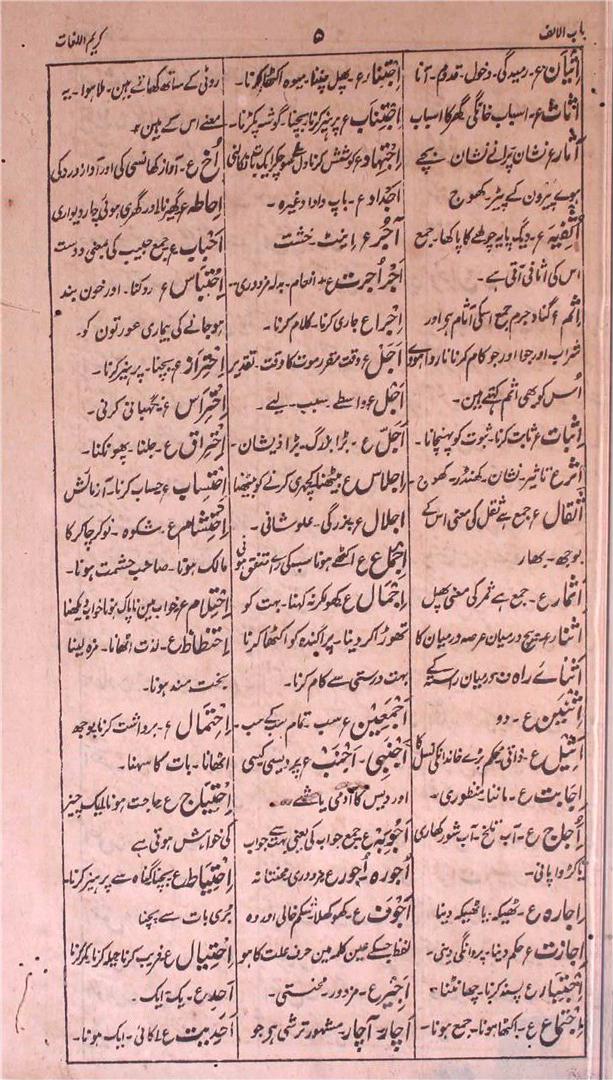 باب الالف
۵
کریم اللغات
اِتیان ع۔ رسیدگی۔ دخول۔ قدوم۔ آنا
اثاث ع۔ اسباب خانگی گھر کا اسباب
آثار ع نشان پرانے نشان بچے
ہوے پیرون کے بیٹر۔ کھوج
اُثفیہ ع۔ دیگ پایہ چولھے کا پاکھا۔ جمع
اس کی اثافی آتی ہے۔
اِثم ع گناہ وجرم جمع اسکی آثام ہی اور
شراب اور جوا اور جو کام کرنا ناروا ہووے
اُس کو بھی اثم کہتے ہین۔
اِثبات ع ثابت کرنا۔ ثبوت کو پہنچانا۔
اثر ع تاثیر۔ نشان۔ کھنڈر۔ کھوج۔
اَثقال ع جمع ہے ثقل کی معنی اس کے
بوجھ۔ بھار
اَثمار ع۔ جمع ہے ثمر کی معنی پھل
اثنا ع بیچ درمیان عرصہ درمیان کا
اَثنائے راہ ف درمیان راستہ کے
اِثنین ع۔ دو
اَثیل ع۔ ذاتی محکم بڑے خاندانکی نسل کا
اِجابت ع۔ ماننا۔ منظوری۔
اُجاج ع۔ آب تلخ۔ آب شور کھاری
یا کڑوا پانی۔
اجارہ ع۔ ٹھیکہ۔ یا ٹھیکہ دینا
اجازت ع حکم دینا۔ پروانگی دینی۔
اِجتبا ع پسند کرنا۔ چھانٹنا۔
اِجتماع ع۔ اکٹھا ہونا۔ جمع ہونا۔
اِجتناء ع۔ پھل چننا۔ میوہ اکٹھا کرنا۔
اِجتناب ع پرہیز کرنا بچنا۔ گوشہ پکڑنا۔
اِجتہاد ع کوشش کرنا
اَجداد ع۔ باپ دادا وغیرہ۔
آجُر ع۔ اینٹ۔ خشت
اَجر اُجرت ع۔ انعام۔ بدلہ مزدوری۔
اِجرا ع جاری کرنا۔ کلام کرنا۔
اَجَل ع وقت مقرر موت کا وقت۔ تقدیر
اَجل ع واسطے سبب۔ لیے۔
اَجَلّ ع۔ بڑا بزرگ۔ بڑا ذیشان۔
اِجلاس ع بیٹھنا کچہری کرنے کو بیٹھنا
اِجلال ع۔ بزرگی۔ علو شانی۔
اِجماع ع اکٹھے ہونا سبکی رائے متفق ہونی
اِجمال ع
تھوڑا کر دینا۔ پراگندہ کو اکٹھا کرنا
بہت درستی سے کام کرنا۔
اَجمعین ع سب۔ تمام۔ سب کے سب۔
اَجنبی۔ اَجنب ع پردیسی کسی
اور دیس کا آدمی
اَجوبہ ع جمع جواب کی یعنی بہت سے جواب
اُجورہ اُجور ع مزدوری محنتانہ
اَجوف ع۔ کھوکھلا شکم خالی اور وہ
لفظ جسکے عین کلمہ مین حرف علت کا ہو
اَجیر ع۔ مزدور۔ محنتی۔
اَچار۔ آچار۔ مشہور ترشی ہی جو
روٹی کے ساتھ کھاتے ہین۔ ملا ہوا۔ یہ
معنے اس کے ہین۔
اُخ ع۔ آواز کھانسی کی اور آواز درد کی
اِحاطہ ع گھیرنا اور گھری ہوئی چار دیواری
اَحباب ع جمع حبیب کی معنی دوست
اِحتباس ع روکنا۔ اور خون بند
ہو جانے کی بیماری عورتون کو۔
اِحتراز ع بچنا۔ پرہیز کرنا۔
اِحتراس ع۔ نگہبانی کرنی۔
اِحتراق ع۔ جلنا۔ پھونکنا۔
اِحتساب ع حساب کرنا۔ آزمائش
اِحتشام ع۔ شکوہ۔ نوکر چاکر کا
مالک ہونا۔ صاحب حشمت ہونا۔
اِحتلام ع خواب مین ناپاک ہونا خواب دیکھنا
اِحتظاظ ع۔ لذت اٹھانا۔ مزہ لینا
بخت مند ہونا۔
اِحتمال ع۔ برداشت کرنا بوجھ
اٹھانا۔ بات کا سہنا۔
اِحتیاج ع حاجت ہونا۔ ایک چیز
کی خواہش ہوتی ہے
اِحتیاط ع بچنا گناہ سے پرہیز کرنا۔
بُری بات سے بچنا
اِحتیال ع فریب کرنا حیلہ کرنا مکر کرنا
اَحد ع۔ یک۔ ایک۔
اَحدیت ع۔ یکتائی۔ ایک ہونا۔